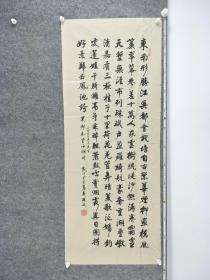 東南形勝江吳都會錢塘自古繁華煙柳畫橋風
簾翠幕參差十萬人家雲樹繞堤沙怒濤捲霜雪
天塹無涯市列珠璣戶盈羅綺競豪奢重湖疊巘
清嘉有三秋桂子十里荷花羌管弄晴菱歌泛夜嬉嬉釣
叟蓮娃千騎擁高牙乘醉聽簫鼓吟賞煙霞異日圖將
好景歸去鳳池誇